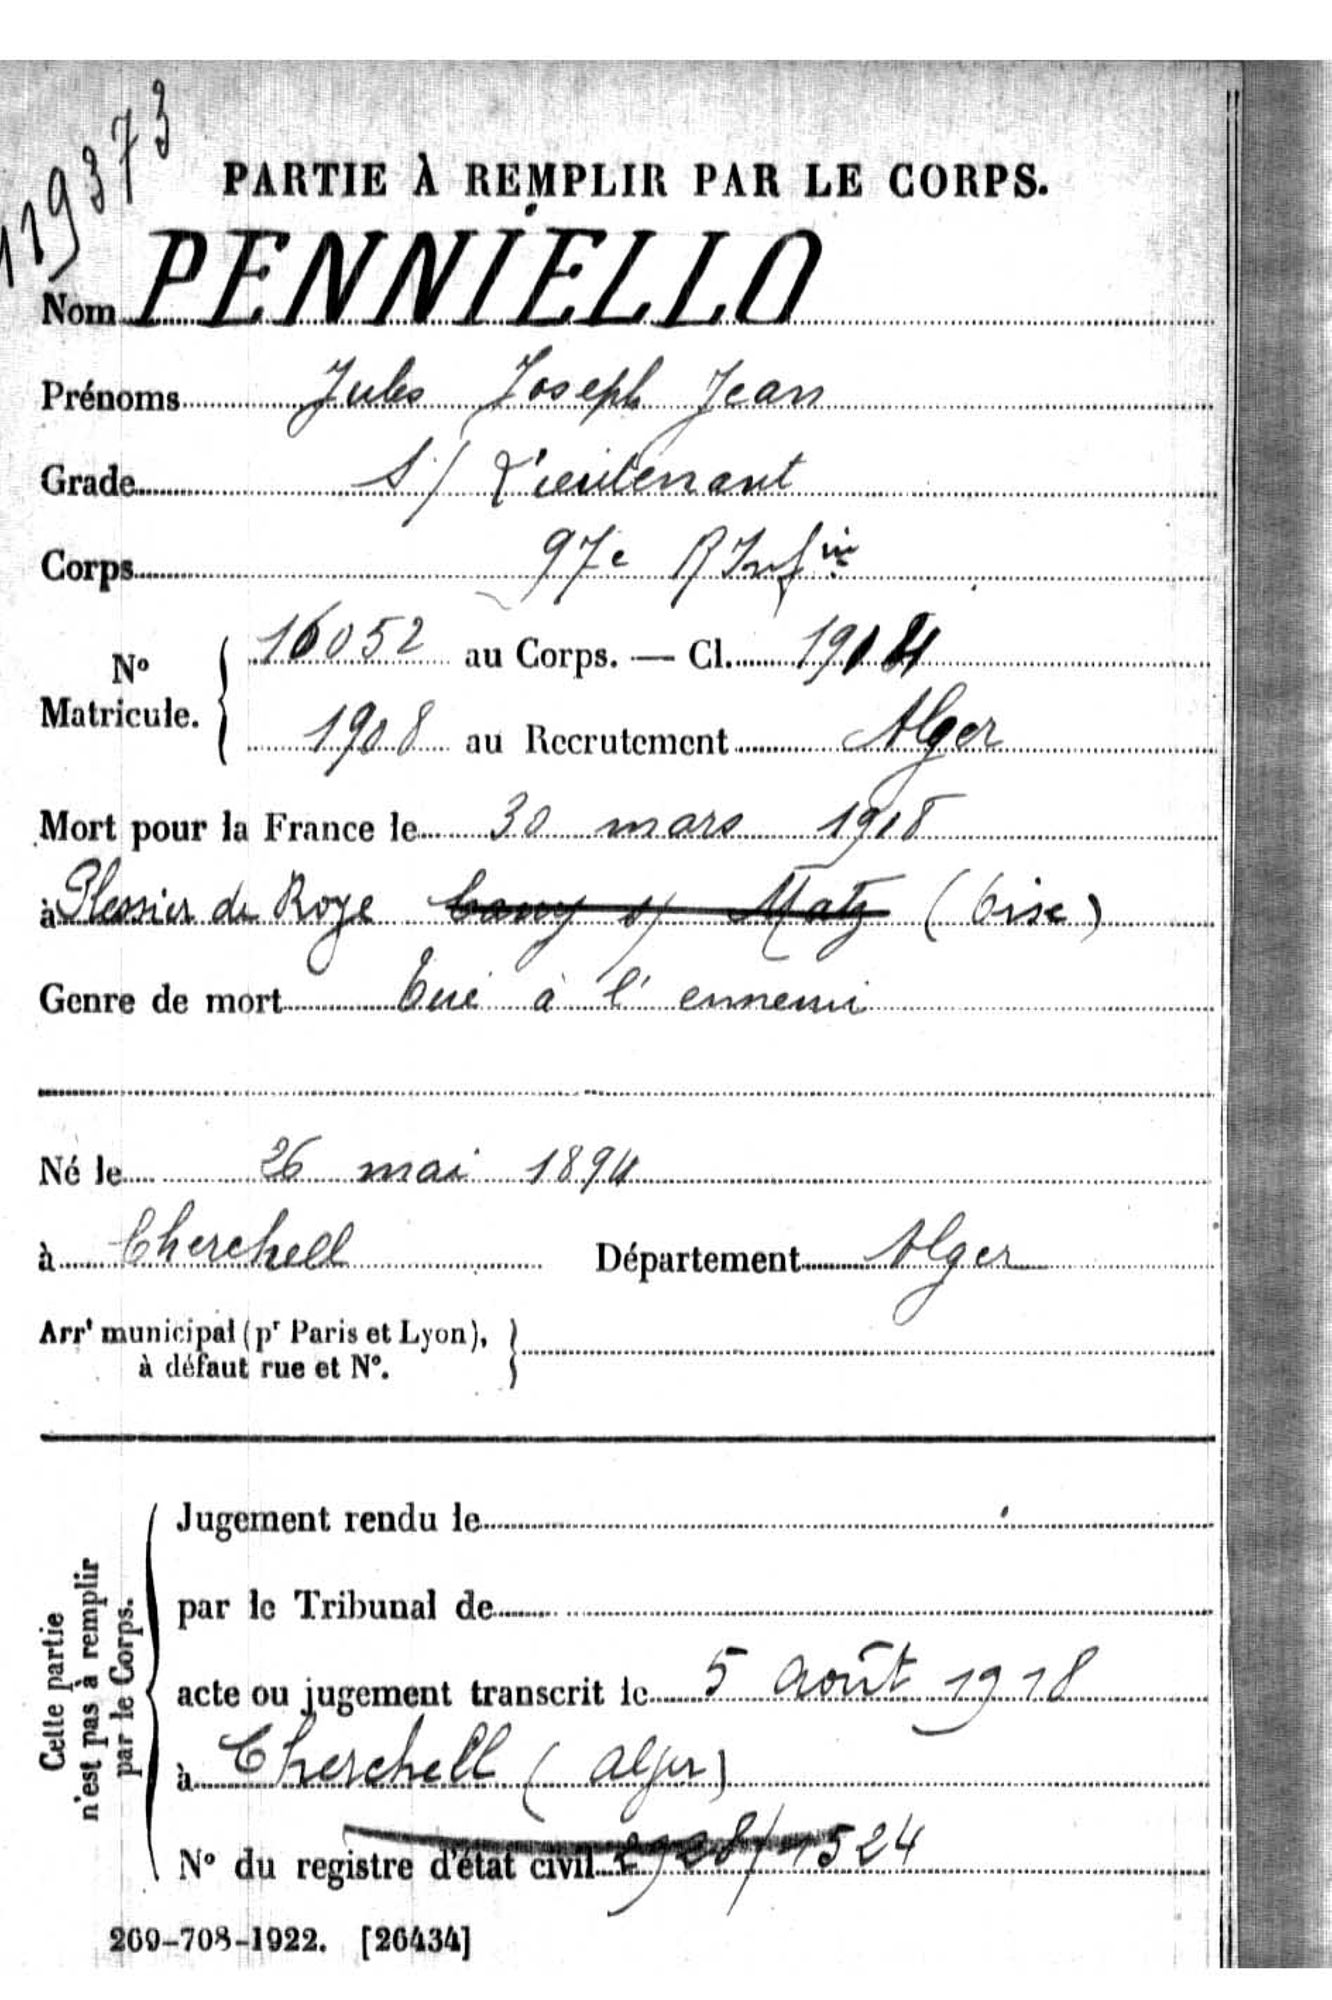 119373
PARTIE À REMPLIR PAR LE CORPS.
Nom PENNIELLO
Prénoms Jules Joseph Jean
Grade S/ Lieutenant
Corps 97e R Infie
No
Matricule.
16052 au Corps. — Cl. 1914
1908 au Recrutement Alger
Mort pour la France le 30 mars 1918
à Plessier de Roye Cany s/ Matz (Oise)
Genre de mort Tué à l'ennemi
Né le 26 mai 1894
à Cherchell Département Alger
Arrt municipal (pr Paris et Lyon),
à défaut rue et No.
Cette partie
n'est pas à remplir
par le Corps.
Jugement rendu le
par le Tribunal de
acte ou jugement transcrit le 5 août 1918
à Cherchell (Alger)
No du registre d'état civil 2928/1524
269-708-1922. [26434]